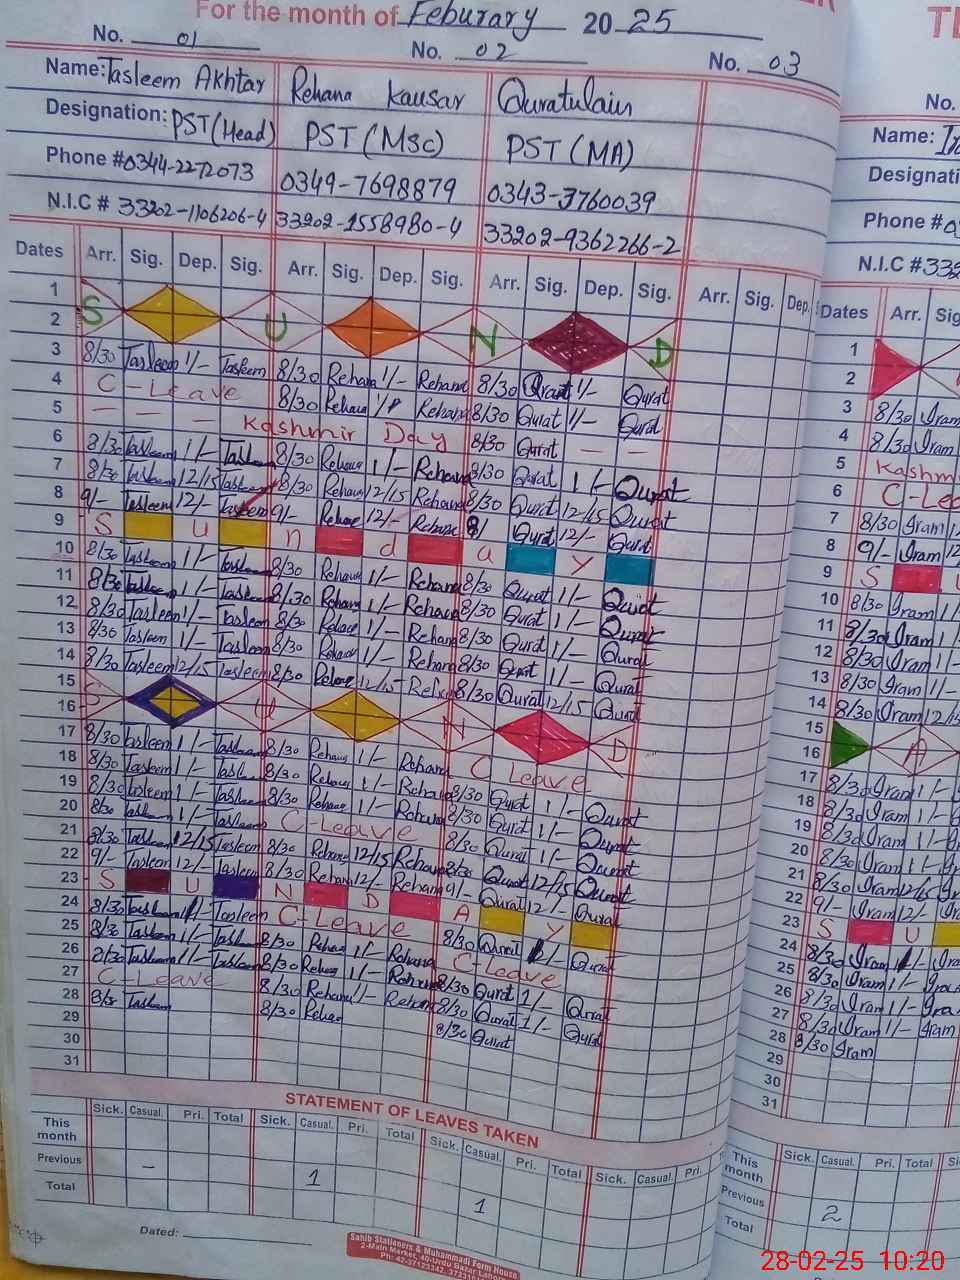 For the month of Feburary 2025
No. 01 No. 02 No. 03
Name: Tasleem Akhtar Rehana Kausar Quratulain
Designation: PST (Head) PST (MSc) PST (MA)
Phone # 0344-2272073 0349-7698879 0343-3760039
N.I.C # 33202-1106206-4 33202-1558980-4 33202-9362266-2
Dates Arr. Sig. Dep. Sig. Arr. Sig. Dep. Sig. Arr. Sig. Dep. Sig. Arr. Sig. Dep.
1
2 S U N D
3 8/30 Tasleem 1/- Tasleem 8/30 Rehana 1/- Rehana 8/30 Qurat 1/- Qurat
4 C-Leave 8/30 Rehana Rehana 8/30 Qurat 1/- Qurat
5 — — Kashmir Day 8/30 Qurat — —
6 8/30 Tasleem 1/- 8/30 Rehana 1/- Rehana 8/30 Qurat 1/- Qurat
7 8/30 Tasleem 12/15 Tasleem 8/30 Rehana 12/15 Rehana 8/30 Qurat 12/15 Qurat
8 9/- Tasleem 12/- Tasleem 9/- Rehana 12/- Rehana Qurat 12/- Qurat
9 S U n d a y
10 8/30 Tasleem 1/- Tasleem 8/30 Rehana 1/- Rehana 8/30 Qurat 1/- Qurat
11 8/30 Tasleem 1/- Tasleem 8/30 Rehana 1/- Rehana 8/30 Qurat 1/- Qurat
12 8/30 Tasleem 1/- Tasleem 8/30 Rehana 1/- Rehana 8/30 Qurat 1/- Qurat
13 8/30 Tasleem 1/- Tasleem 8/30 Rehana 1/- Rehana 8/30 Qurat 1/- Qurat
14 8/30 Tasleem 12/15 Tasleem 8/30 Rehana 12/15 Rehana 8/30 Qurat 12/15 Qurat
15
16 S U N D
17 8/30 Tasleem 1/- Tasleem 8/30 Rehana 1/- Rehana C Leave
18 8/30 Tasleem 1/- 8/30 Rehana 1/- Rehana 8/30 Qurat 1/- Qurat
19 8/30 Tasleem 1/- Tasleem 8/30 Rehana 1/- Rehana 8/30 Qurat 1/- Qurat
20 8/30 Tasleem 1/- Tasleem C-Leave 8/30 Qurat 1/- Qurat
21 8/30 Tasleem 12/15 Tasleem 8/30 Rehana 12/15 Rehana 8/30 Qurat 12/15 Qurat
22 9/- Tasleem 12/- Tasleem 8/30 Rehana 12/- Rehana 9/- Qurat 12/- Qurat
23 S U N D A Y
24 8/30 Tasleem Tasleem C-Leave 8/30 Qurat Qurat
25 8/30 Tasleem 1/- 8/30 Rehana 1/- Rehana C-Leave
26 8/30 Tasleem 1/- Tasleem 8/30 Rehana 1/- Rehana 8/30 Qurat 1/- Qurat
27 C-Leave 8/30 Rehana 1/- Rehana 8/30 Qurat 1/- Qurat
28 8/30 8/30 Rehana 8/30 Qurat
29
30
31
STATEMENT OF LEAVES TAKEN
Sick. Casual. Pri. Total Sick. Casual. Pri. Total Sick. Casual. Pri. Total Sick. Casual. Pri.
This month
Previous – 1 1
Total
Dated:
Sahib Stationers & Muhammadi Form House
2-Main Market, 40-Urdu Bazar Lahore
No.
Name:
Phone #
N.I.C # 332
Dates Arr.
1
2
3 8/30 Iram
4 8/30 Iram
5
6
7 8/30 Iram
8 9/- Iram 12
9 S U
10 8/30 Iram
11 8/30 Iram
12 8/30 Iram 1/-
13 8/30 Iram 1/-
14 8/30 Iram 12/15
15
16 A
17 8/30 Iram 1/-
18 8/30 Iram 1/-
19 8/30 Iram 1/-
20 8/30 Iram 1/-
21 8/30 Iram 12/15
22 9/- Iram 12/-
23 S U
24 8/30 Iram
25 8/30 Iram 1/-
26 8/30 Iram 1/-
27 8/30 Iram 1/- Iram
28 8/30 Iram
29
30
31
Sick. Casual. Pri. Total
This month
Previous 2
Total
28-02-25 10:20